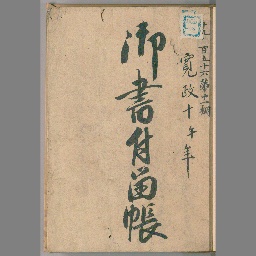 百五十六第十二棚
寛政十午年
御書付留帳